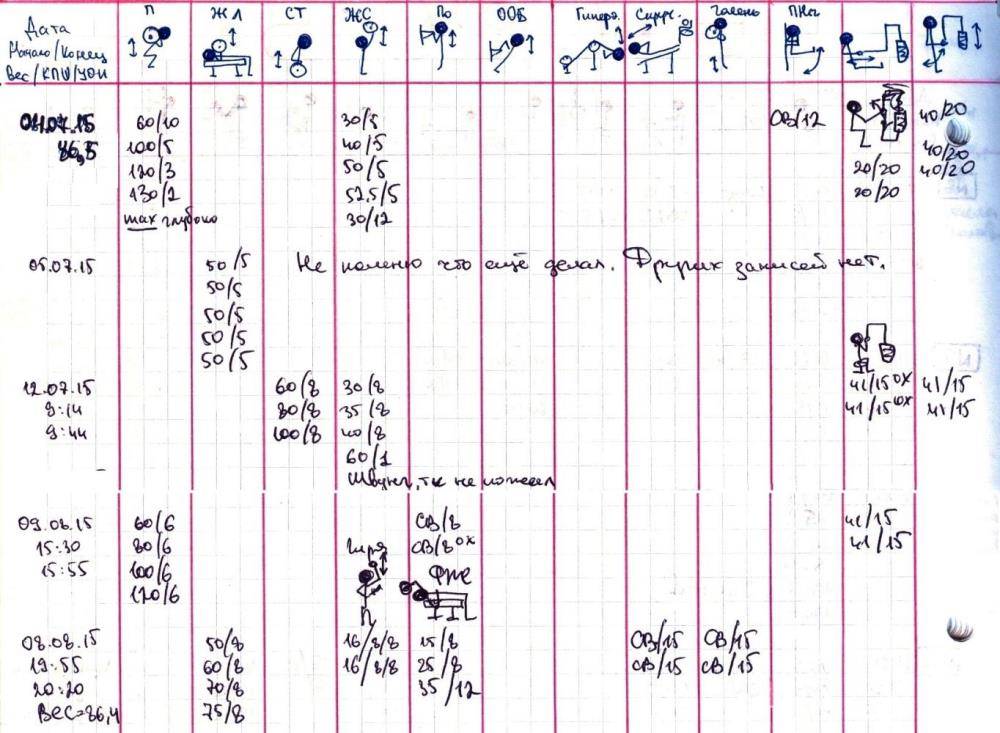 Дата П ЖЛ СТ ЖС По ООБ Гиперэ. Скруч. Голень ПНог
Начало/Конец
Вес/КПШ/УОИ
04.07.15 60/10 30/5 СВ/12 40/20
86,5 100/5 40/5 40/20
120/3 50/5 20/20 40/20
130/2 52,5/5 20/20
max глубоко 30/12
05.07.15 50/5 Не помню что ещё делал. Других записей нет.
50/5
50/5
50/5
50/5
12.07.15 60/8 30/8 41/15 ОХ 41/15
9:14 80/8 35/8 41/15 ЮХ 41/15
9:44 100/8 40/8
60/1
Швунг, тк не
09.06.15 60/6 СВ/8 41/15
15:30 80/6 СВ/8 ОХ 41/15
15:55 100/6 гиря Фже
120/6
08.08.15 50/8 16/8/8 15/8 СВ/15 СВ/15
19:55 60/8 16/8/8 25/8 СВ/15 СВ/15
20:20 70/8 35/12
Вес=86,4 75/8